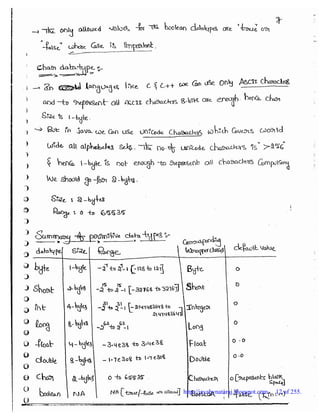 7
→ The only allowed values for the boolean datatypes are "true" or
"false" where Case is important.
Char data-type :-
→ In old languages like C & C++ we can use only ASCII characters
and to represent all ASCII characters 8-bits are enough hence char
Size is 1-byte.
→ But in Java we can use unicode characters which covers world
wide all alphabets sets. The no of unicode characters is >256
& hence 1-byte is not enough to represent all characters compulsory
we should go for 2-bytes.
Size : 2-bytes
Range : 0 to 65535
Summary of primitive data-types :-
datatype Size Range Corresponding Wrapper class default value
byte 1-byte -2^7 to 2^7-1 [-128 to 127] Byte 0
Short 2-bytes -2^15 to 2^15-1 [-32768 to 32767] Short 0
int 4-bytes -2^31 to 2^31-1 [-2147483648 to 2147483647] Integer 0
long 8-bytes -2^63 to 2^63-1 Long 0
float 4-bytes -3.4e38 to 3.4e38 Float 0.0
double 8-bytes -1.7e308 to 1.7e308 Double 0.0
char 2-bytes 0 to 65535 Character 0 [represents blank space]
boolean N/A NA [true/false are allowed] Boolean false
of 255.